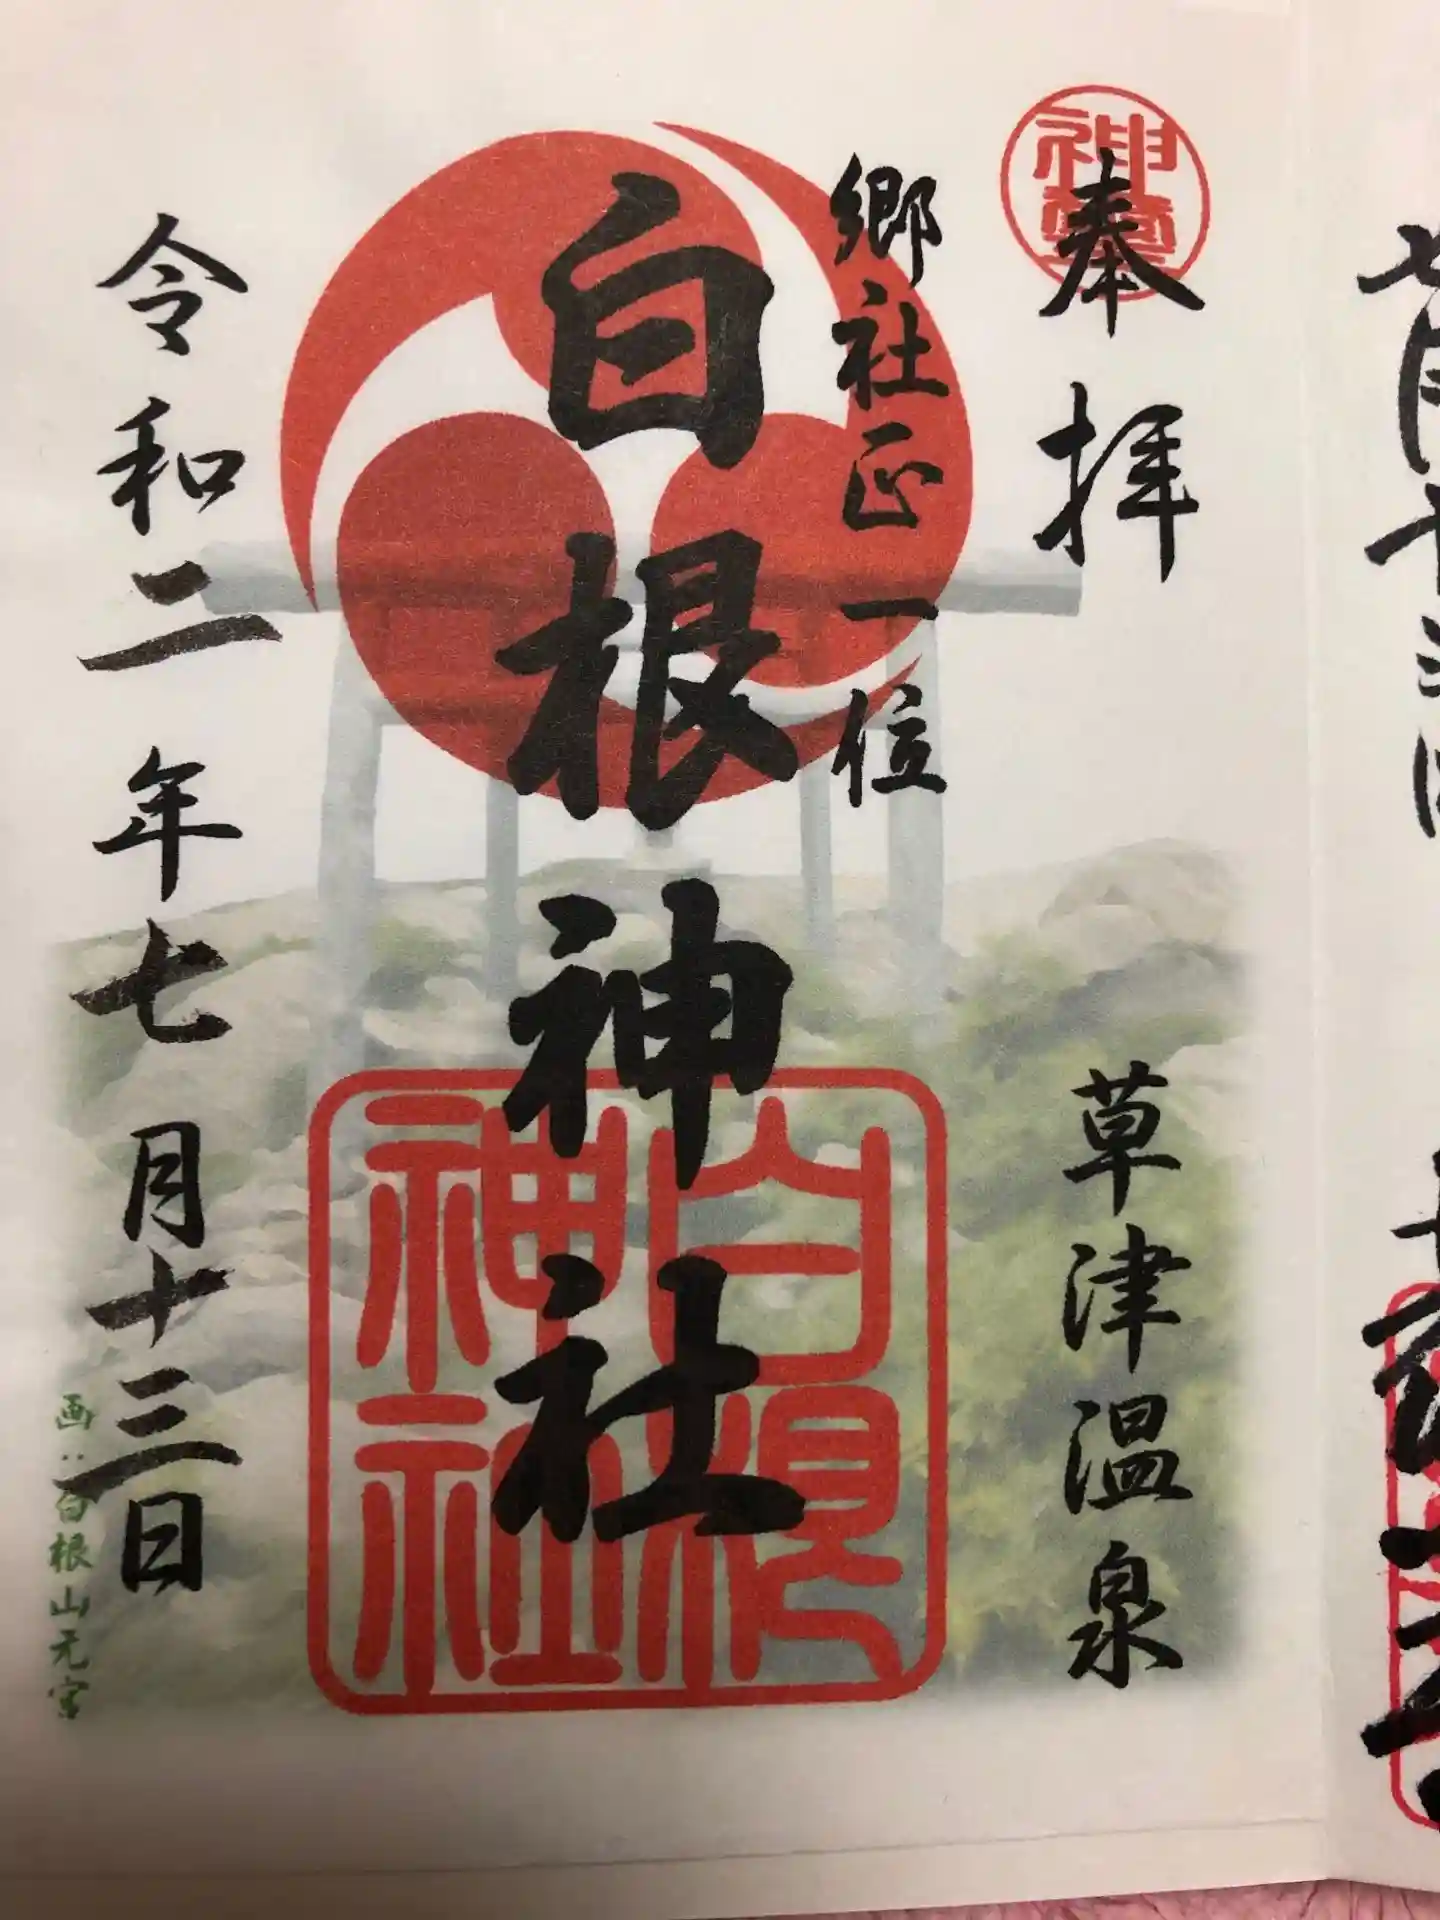 奉拝
草津温泉
郷社正一位
白根神社
白根
神社
令和二年七月十三日
画:白根山元宮